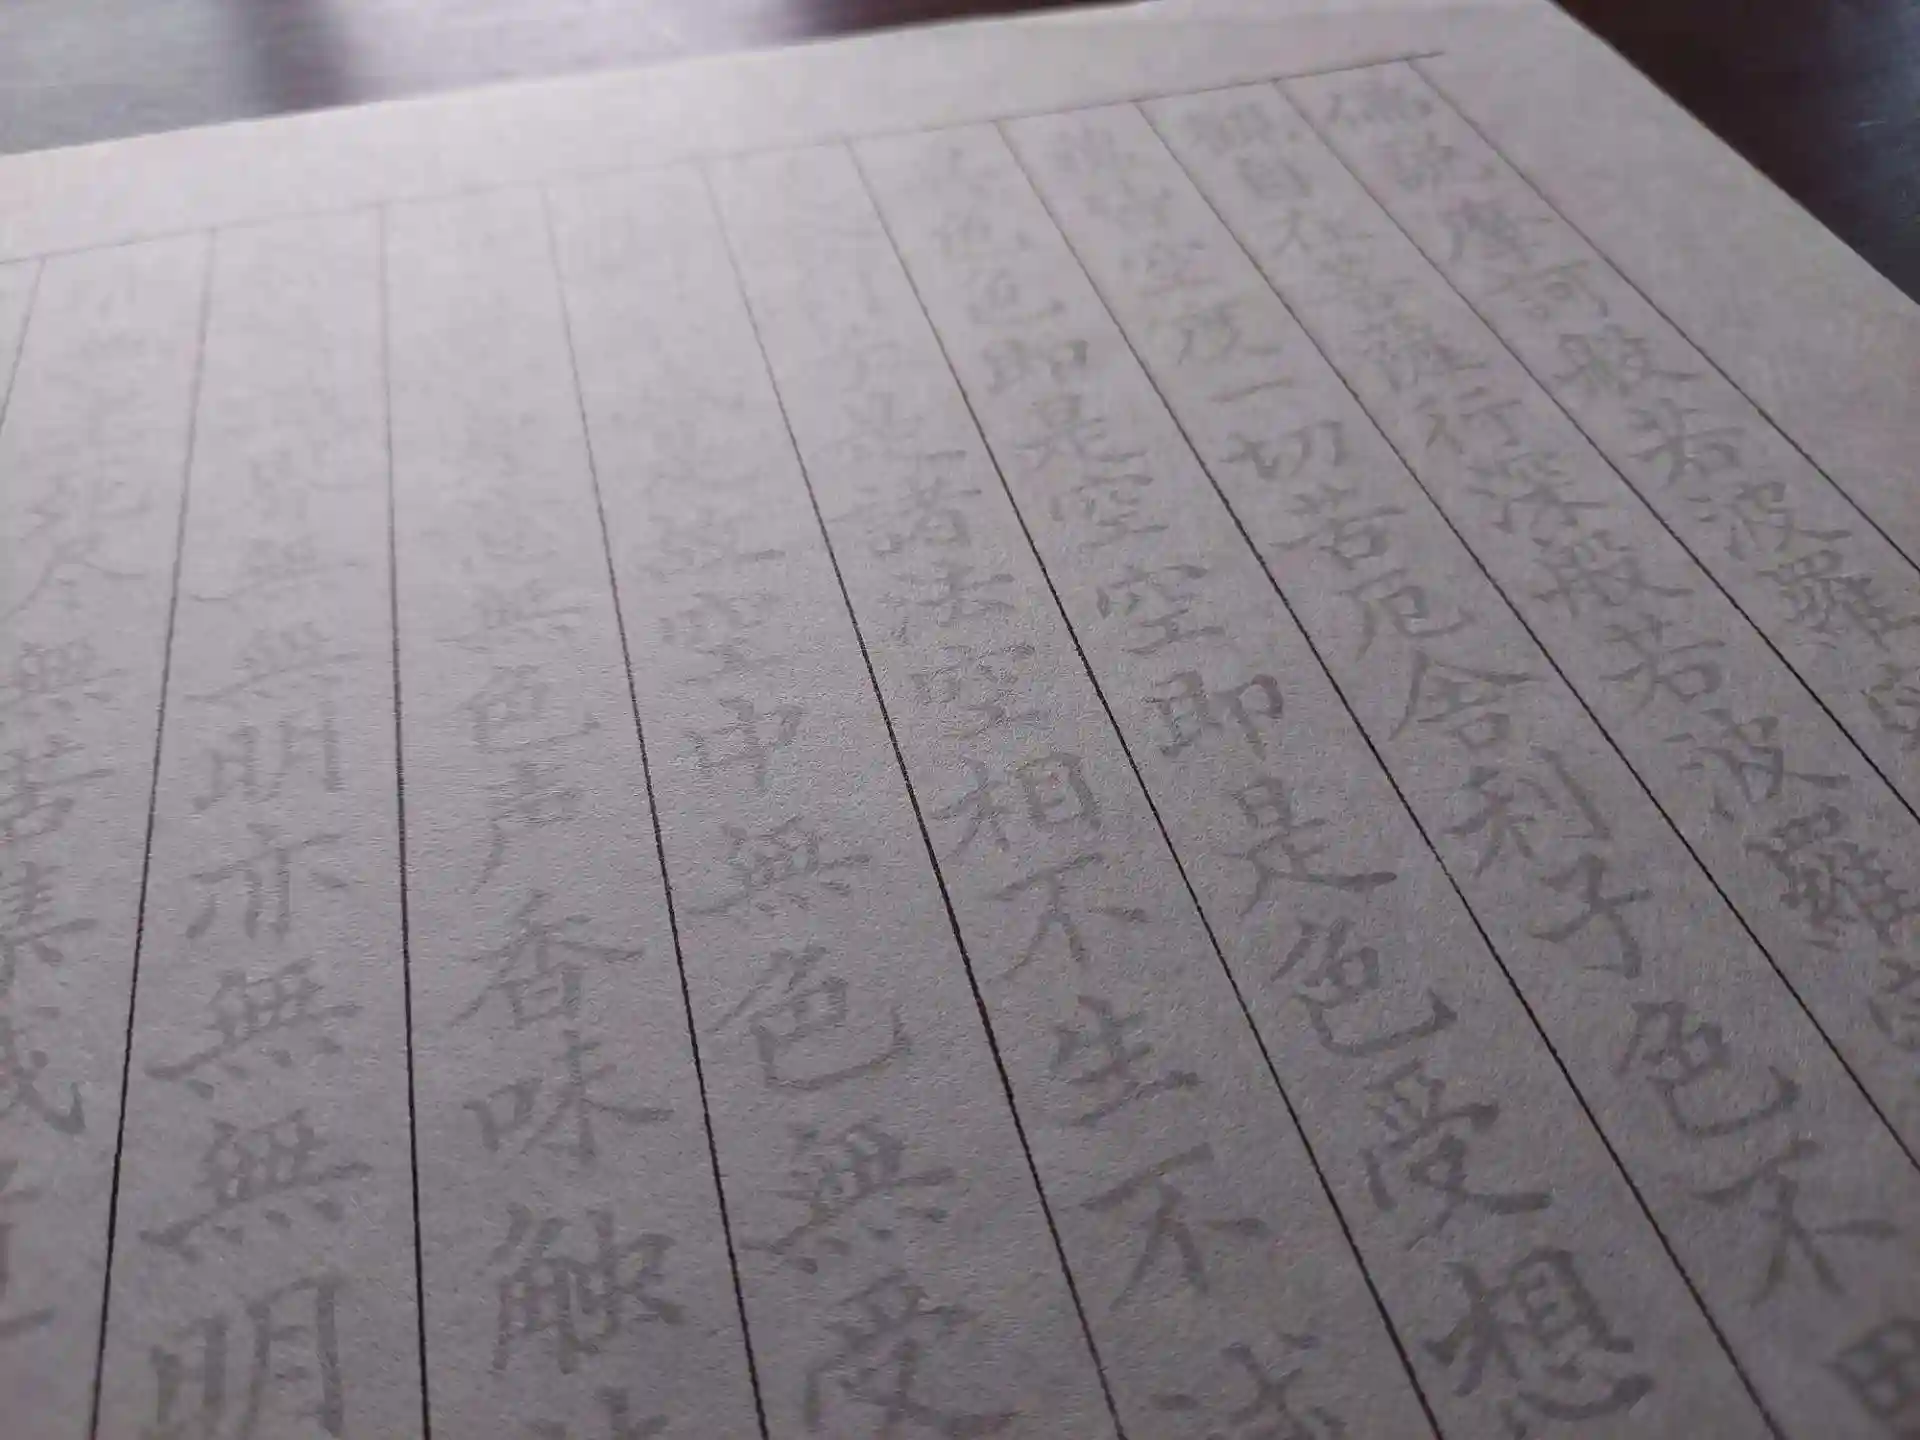 佛説摩訶般若波羅蜜
觀自在菩薩行深般若波羅蜜
蘊皆空度一切苦厄舍利子色不異
色色即是空空即是色受想
是諸法空相不生不
是故空中無色無受
意無色声香味触
界無無明亦無無明
死尽無苦集滅